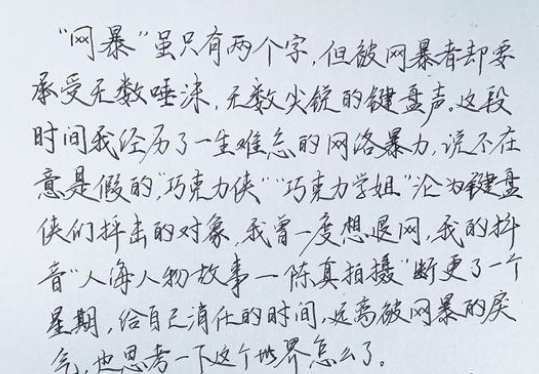 “网暴”虽只有两个字，但被网暴者却要
承受无数唾沫，无数尖锐的键盘声。这段
时间我经历了一生难忘的网络暴力，说不在
意是假的，“巧克力侠”“巧克力学姐”沦为键盘
侠们抨击的对象，我曾一度想退网，我的抖
音“人海人物故事一陈真拍摄”断更了一个
星期，给自己消化的时间，远离被网暴的戾
气，也思考一下这个世界怎么了。